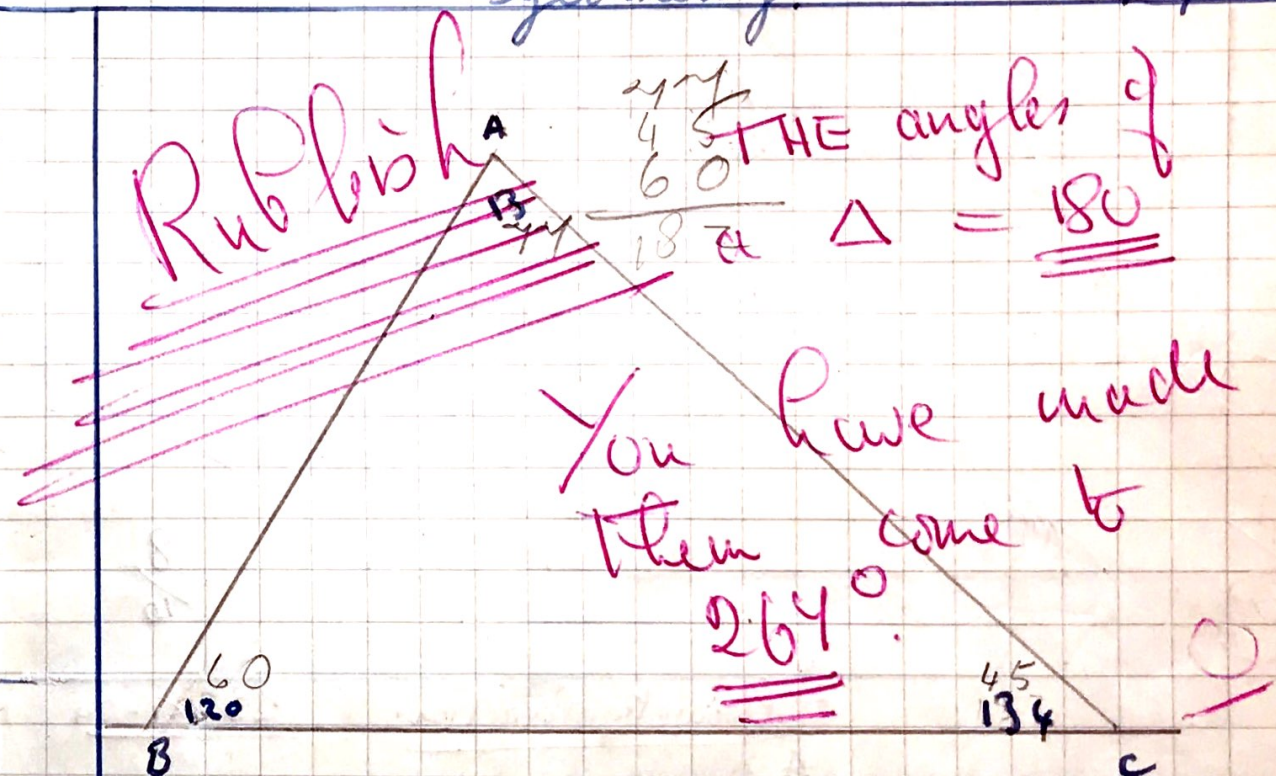 Rubbish
A
77
45
60
THE angles of
77
18
Δ = 180
You have made
them come to
264°.
60
120
45
134
0
B
C